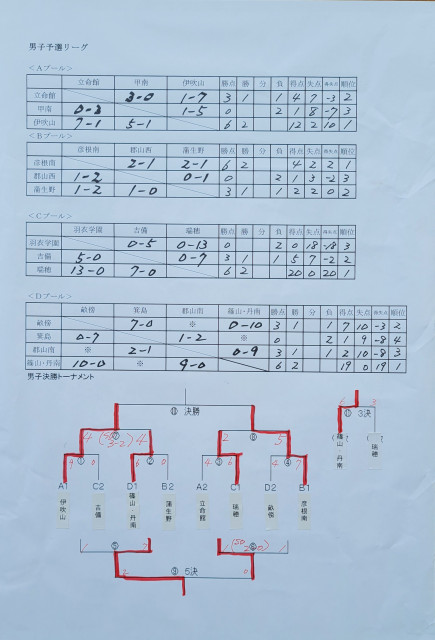 男子予選リーグ
＜Aプール＞
立命館 甲南 伊吹山 勝点 勝 分 負 得点 失点 得失点 順位
立命館 3-0 1-7 3 1 1 4 7 -3 2
甲南 0-3 1-5 0 2 1 8 -7 3
伊吹山 7-1 5-1 6 2 12 2 10 1
＜Bプール＞
彦根南 郡山西 蒲生野 勝点 勝 分 負 得点 失点 得失点 順位
彦根南 2-1 2-1 6 2 4 2 2 1
郡山西 1-2 0-1 0 2 1 3 -2 3
蒲生野 1-2 1-0 3 1 1 2 2 0 2
＜Cプール＞
羽衣学園 吉備 瑞穂 勝点 勝 分 負 得点 失点 得失点 順位
羽衣学園 0-5 0-13 0 2 0 18 -18 3
吉備 5-0 0-7 3 1 1 5 7 -2 2
瑞穂 13-0 7-0 6 2 20 0 20 1
＜Dプール＞
畝傍 箕島 郡山南 篠山・丹南 勝点 勝 分 負 得点 失点 得失点 順位
畝傍 7-0 ※ 0-10 3 1 1 7 10 -3 2
箕島 0-7 1-2 ※ 0 2 1 9 -8 4
郡山南 ※ 2-1 0-9 3 1 1 2 10 -8 3
篠山・丹南 10-0 ※ 9-0 6 2 19 0 19 1
男子決勝トーナメント
⑪ 決勝
⑩ 3決
4 4 2 5
① ② ③ ④
A1 C2 D1 B2 A2 C1 D2 B1
伊吹山 吉備 篠山・丹南 蒲生野 立命館 瑞穂 畝傍 彦根南
篠山・丹南 瑞穂
⑤
⑨ 5決